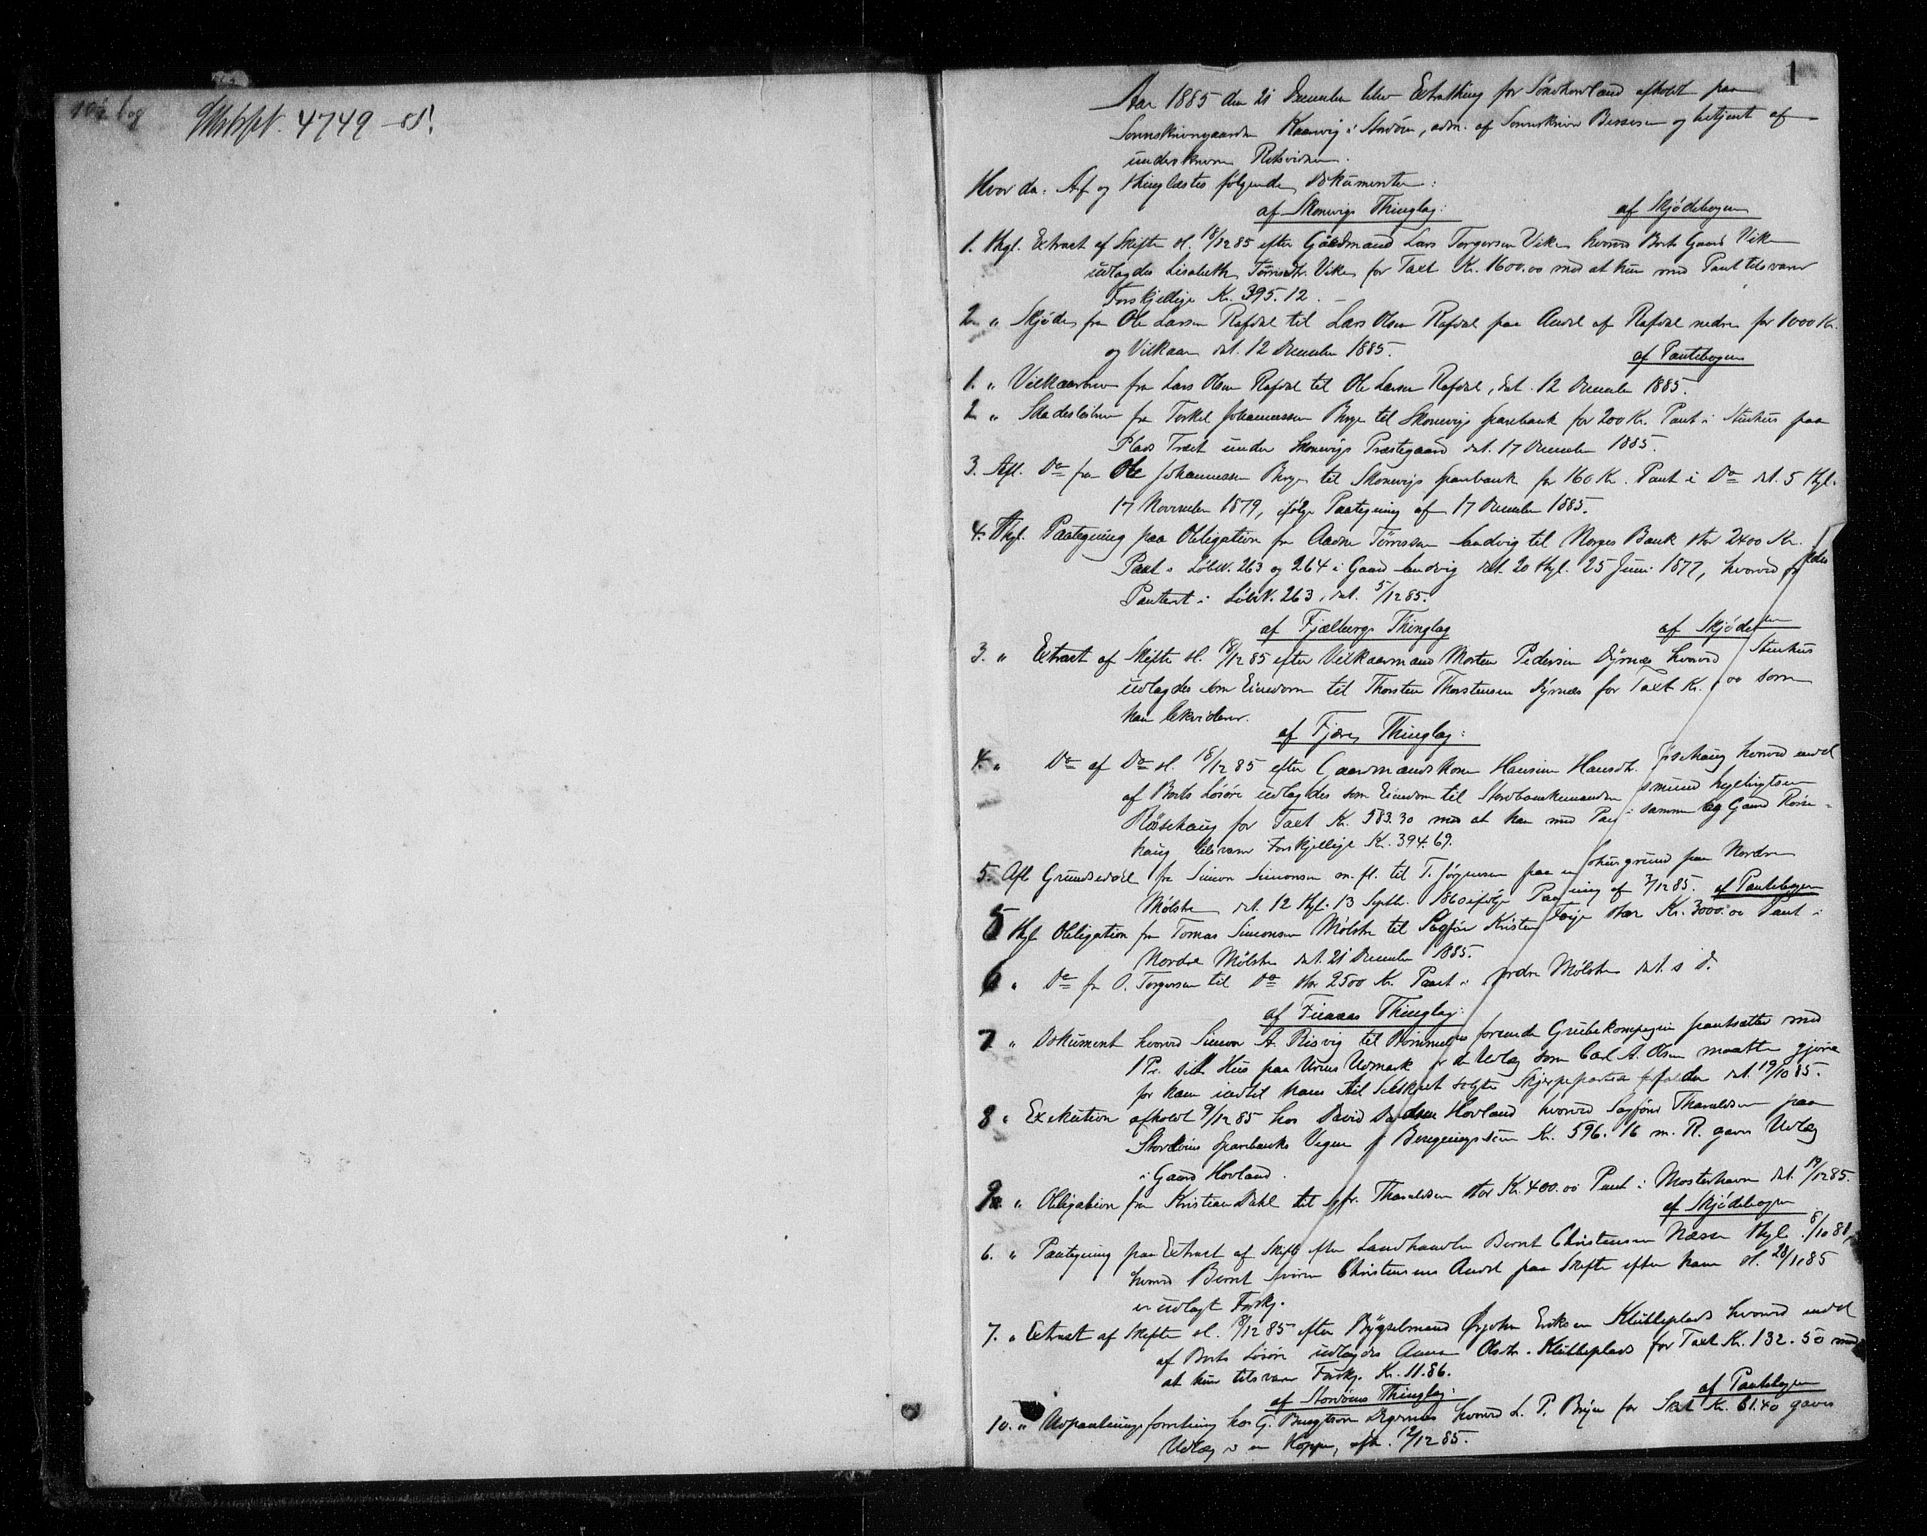 4749
1
Aar 1885 den 21 December blev Extrathing for Søndhorland afholdt paa
Sorenskrivergaarden Kaarvig i Stordøen, adm. af Sorenskriver og betjent af
underskrevne Retsvidner.
Hvor da: Af og thinglæstes følgende Dokumenter:
af Skonevigs Thinglag: af Skjødebogen
1. Thgl. Extract af Skifte sl. 18/12 85 efter Gaardmand Lars Torgersen Viken hvorved Boets Gaard Viken
udlagdes Lisabeth Tørrisdtr. Viken for Taxt Kr. 1600.00 mod at hun med Pant tilsvarer
Forskjellige Kr. 395.12.
2. " Skjøde fra Ole Larsen Rafdal til Lars Olsen Rafdal paa Andel af Rafdal nedre for 1000 Kr.
og Vilkaar dat. 12 December 1885. af Pantebogen
1. " Vilkaarbrev fra Lars Olsen Rafdal til Ole Larsen Rafdal, dat. 12 December 1885.
2. " Skadesløsbrev fra Torkel Johannessen Berge til Skonevigs Sparebank for 200 Kr. Pant i Stuehus paa
Plads Træet under Skonevigs Præstegaard dat. 17 December 1885.
3. Afl. Do fra Ole Johannessen Berge til Skonevigs Sparebank for 160 Kr. Pant i Do dat. 5 thgl.
17 November 1879, ifølge Paategning af 17 December 1885.
4. Thgl. Paategning paa Obligation fra Aadne Tørressen Sandvig til Norges Bank stor 2400 Kr.
Pant i LøbeN. 263 og 264 i Gaard Sandvig dat. 20 thgl. 25 Juni 1877, hvorved
Panteret i LøbeN. 263, dat. 5/12 85.
af Fjælbergs Thinglag af Skjødebn
3. " Extract af Skifte sl. 18/12 85 efter Vilkaarmand Morten Pedersen Dyrnæs hvorved Stuehus
udlagdes som Eiendom til Thorsten Thorstensen Dyrnæs for Taxt Kr. som
han likviderer.
af Fjære Thinglag:
4. " Do af Do sl. 18/12 85 efter Gaardmandskone Hansine Hansdtr. hvorved endel
af Boets Løsøre udlagdes som Eiendom til
for Taxt Kr. 583.30 mod at han med Pant i samme og Gaard
haug tilsvarer Forskjellige Kr. 394.69.
5. Afl. Grundseddel fra Simon Simonsen m. fl. til T. Jørgensen paa en grund paa Nordre
Mølster dat. 12 thgl. 13 Septbr. 1860 ifølge Paategning af 3/12 85. af Pantebogen
5 Thgl. Obligation fra Tomas Simonsen Mølster til Sagfør Kristen Faye stor Kr. 3000.00 Pant i
Nordre Mølster dat. 21 December 1885.
6 " Do fra O. Torgersen til Do stor 2500 Kr. Pant i Nordre Mølster dat. s. D.
af Finaas Thinglag:
7 " Dokument hvorved Simon A. Risvig til Bømmeløens forende Grubekompagni pantsætter med
1 Pr. sit Hus paa Udmark for de Udlæg som Carl A. Olsen maatte gjøre
for ham indtil hans til Selskabet solgte dat. 19/10 85.
8 " Exekution afholdt 9/12 85 hos David Hovland hvorved Sagfører Tharaldsen paa
Stordøens Sparebanks Vegne for Kr. 596.16 m. R. gaves Udlæg
i Gaard Hovland.
9. " Obligation fra Kristian Dahl til Sgfr. Tharaldsen stor Kr. 400.00 Pant i Mosterhavn dat. 19/12 85.
af Skjødebogen
6. " Paategning paa Extract af Skifte efter Landhandler Bernt Christensen Næsse thgl. 8/10 81,
hvorved Bernt Christensens Andel paa Skifte efter ham sl. 28/11 85
er udlagt Forskj.
7. " Extract af Skifte sl. 18/12 85 efter Bygselmand Eriksen Klubbeplads hvorved endel
af Boets Løsøre udlagdes Anna Olsdtr. Klubbeplads for Taxt Kr. 132.50 mod
at hun tilsvarer Forskj. Kr. 11.86.
af Stordøens Thinglag: af Pantebogen
10. " Udpantningsforretning hos G. Bengtson Digernæs hvorved L. P. for Skat Kr. 61.40 gaves
Udlæg i en Koppe, afh. 12/12 85.